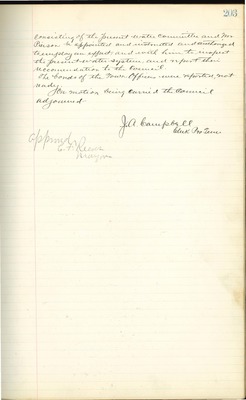 203
consisting of the present water committee and Mr
Pearson be appointed and instructed and authorized
to employ an expert and with him to inspect
the present water system and report their
recomendation to the Council.
The bonds of the Town Officers were reported not
ready
On motion being carried the Council
adjourned
J. A. Campbell
Clerk Pro Tem
Approved
Mayor